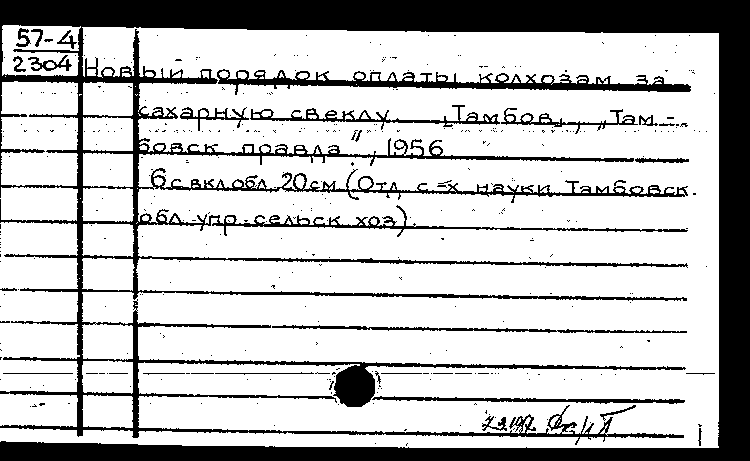 57-4
2304
Новый порядок оплаты колхозам за
сахарную свеклу. „Тамбов„, „Там-
бовск правда", 1956
6 с вкл обл. 20 см (Отд с-х науки Тамбовск.
обл упр. сельск хоз).